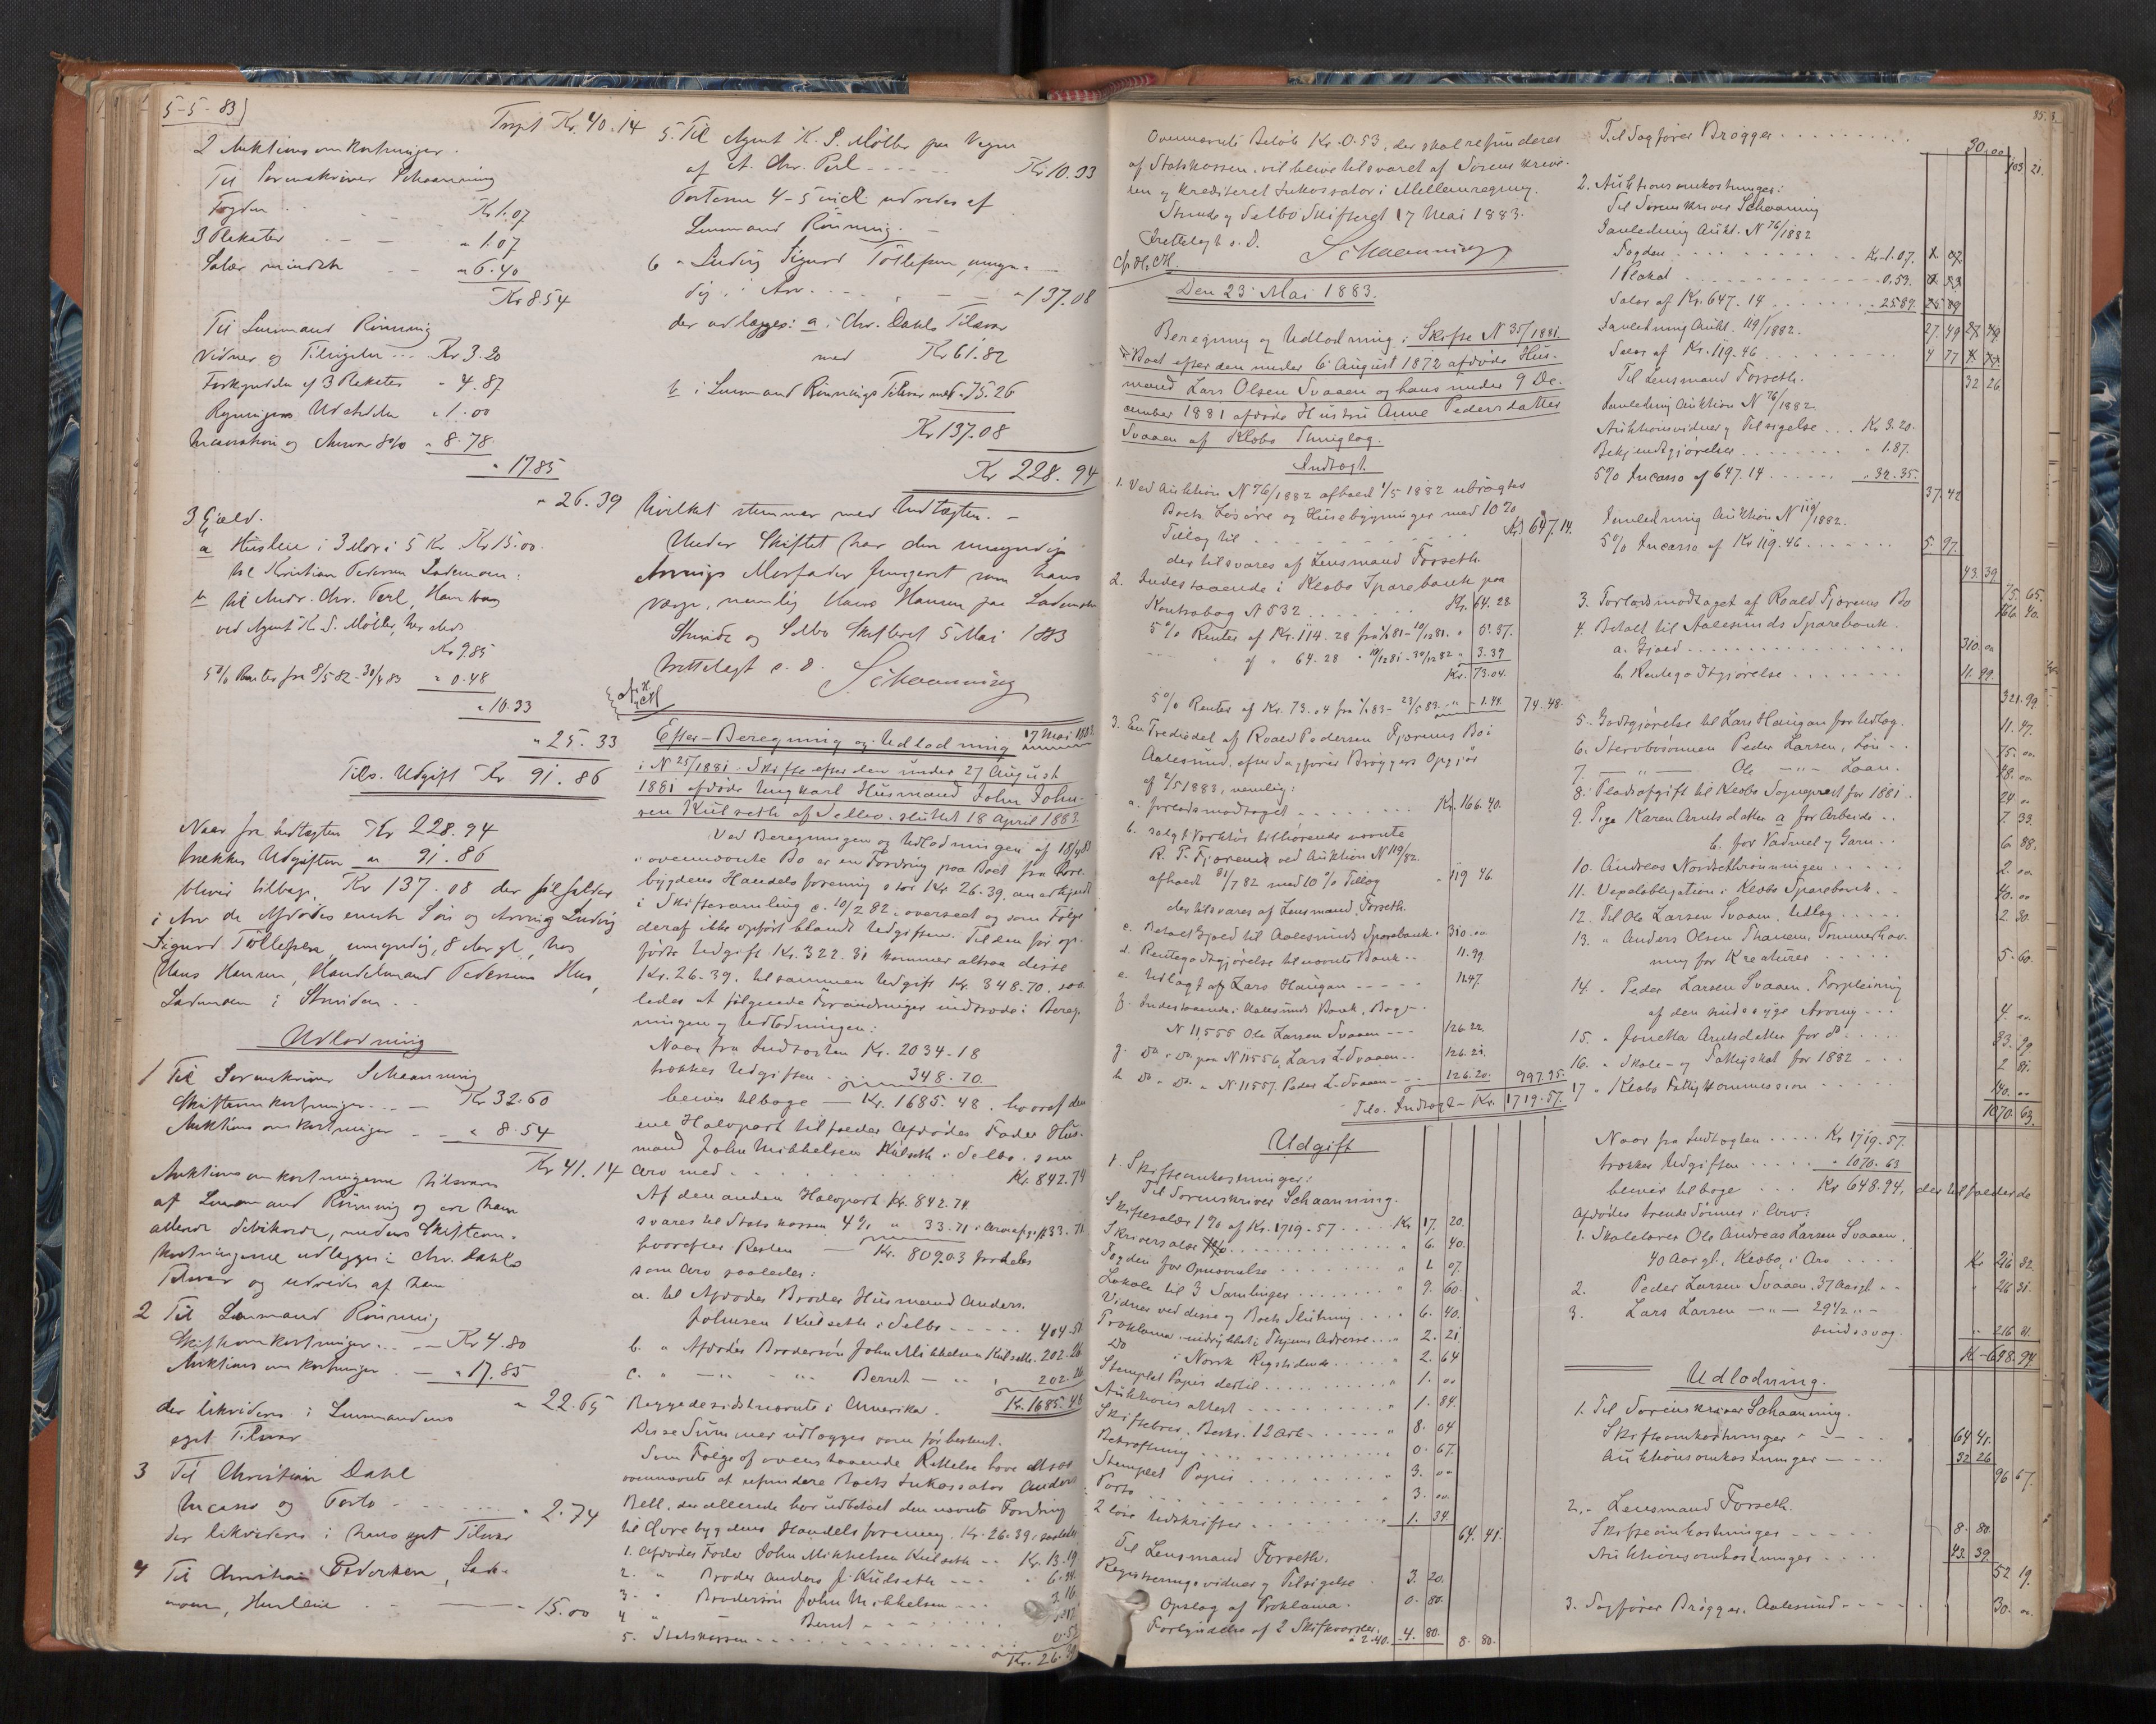 5-5-83
Trspt Kr. 40.14
2 Auktionsomkostninger.
Til Sorenskriver Schaanning
Fogden Kr 1.07
3 Plakater " 1.07
Salær mindste " 6.40
Kr 8.54
Til Lensmand Rönning
Vidner og Tilsigelse Kr 3.20
Forkyndelse af 3 Plakater " 4.87
Regningens Udstedelse " 1.00
Incassation og Ansvar 8% " 8.78
" 17.85
" 26.39
3 Gjæld.
a Husleie i 3 Mdr i 5 Kr. Kr 15.00
til Kristian Pedersen Lademoen.
b til Andr. Chr. Perl, Hamburg
ved Agent K. S. Möller, her steds
Kr 9.85
5% Renter fra 8/5 82 - 30/4 83 " 0.48
" 10.33
" 25.33
Tils. Udgift Kr 91.86
Naar fra Indtægten Kr 228.94
trækkes Udgiften " 91.86
bliver tilbage Kr 137.08 der tilfalder
i Arv de Afdödes eneste Sön og Arving Ludvig
Sigurd Töllefsen, umyndig, 8 Aar gl, hos
Hans Hansen, Handelsmand Pedersens Hus,
Lademoen i Strinden.
Udlodning
1 Til Sorenskriver Schaanning
Skifteomkostninger Kr 32.60
Auktionsomkostninger " 8.54
Kr 41.14
Auktionsomkostningerne tilsvares
af Lensmand Rönning og ere ham
allerede debiterede, medens Skifteom-
kostningerne udlægges i Chr. Dahls
Tilsvar og udredes af ham
2 Til Lensmand Rönning
Skifteomkostninger Kr 4.80
Auktionsomkostninger " 17.85
" 22.65
der likvideres i Lensmandens
eget Tilsvar
3 Til Christian Dahl
Incasso og Porto " 2.74
der likvideres i hans eget Tilsvar
4 Til Christian Pedersen, Lade-
moen, Husleie 15.00
5. Til Agent K. S. Möller paa Vegne
af A. Chr. Perl Kr 10.33
Posterne 4-5 incl. udredes af
Lensmand Rönning.
6 " Ludvig Sigurd Töllefsen, umyn-
dig, i Arv " 137.08
der udlægges: a i Chr. Dahls Tilsvar
med Kr 61.82
b i Lensmand Rönnings Tilsvar med " 75.26
Kr 137.08
Kr 228.94
hvilket stemmer med Indtægten.
Under Skiftet har den umyndige
Arvings Morfader fungeret som hans
Værge, nemlig Hans Hansen paa Lademoen
Strinde og Selbo Skifteret 5 Mai 1883
Irettelagt s. d. Schaanning
Efter-Beregning og Udlodning 17 Mai 1883
i N 25/1881. Skifte efter den under 27 August
1881 afdöde Ungkarl Husmand John John-
sen Kulseth af Selbo. sluttet 18 April 1883
Ved Beregningen og Udlodningen af 18/4 83
i ovennævnte Bo er en Fordring paa Boet fra Övre-
bygdens Handelsforening stor Kr. 26.39, anerkjendt
i Skiftesamling d. 10/2 82, overseet og som Fölge
deraf ikke opfört blandt Udgifterne. Til den för op-
förte Udgift Kr. 322.31 kommer altsaa disse
Kr. 26.39. tilsammen Udgift Kr. 348.70. saa-
ledes at fölgende Forandringer indtræde i Bereg-
ningen og Udlodningen:
Naar fra Indtægten Kr. 2034.18
trækkes Udgiften 348.70
bliver tilbage Kr. 1685.48. hvoraf den
ene Halvpart tilfalder Afdödes Fader Hus-
mand John Mikkelsen Kulseth i Selbo. som
Arv med Kr. 842.74
Af den anden Halvpart Kr. 842.74.
svares til Statskassen 4% " 33.71 i Arveafgift 33.71
hvorefter Resten Kr. 809.03 fordeles
som Arv saaledes:
a. til Afdödes Broder Husmand Anders
Johnsen Kulseth i Selbo 404.51
b. " Afdödes Brodersön John Mikkelsen Kulseth 202.26
c. " " " Berret " 202.26
Begge de sidstnævnte i Amerika. Kr. 1685.48
Disse Summer udlægges som för bestemt.
Som Fölge af ovenstaaende Rettelse have altsaa
ovennævnte at refundere Boets Inkassator Anders
Bell, der allerede har udbetalt den nævnte Fordring
til Övrebygdens Handelsforening Kr. 26.39. saaledes
1. Afdödes Fader John Mikkelsen Kulseth Kr. 13.19
2. " Broder Anders J. Kulseth " 6.34
3. " Brodersön John Mikkelsen 3.16
4 " Berret
5. Statskassen 0.53
Kr. 26.39
Ovennævnte Belöb Kr. 0.53, der skal refunderes
af Statskassen, vil blive tilsvaret af Sorenskrive-
ren og krediteret Inkassator i Mellemregning.
Strinde og Selbo Skifteret 17 Mai 1883.
Irettelagt s. D. Schaanning
Den 23 Mai 1883.
Beregning og Udlodning i Skifte N 35/1881
i Boet efter den under 6 August 1872 afdöde Hus-
mand Lars Olsen Svaaen og hans under 9 De-
cember 1881 afdöde Hustru Anne Pedersdatter
Svaaen af Klæbo Thinglag.
Indtægt
1. Ved Auktion N 76/1882 afholdt 1/5 1882 udbragtes
Boets Lösöre og Husebygninger med 10%
Tillæg til Kr. 647.14.
der tilsvares af Lensmand Forseth.
2. Indestaaende i Klæbo Sparebank paa
Kontrabog N 532 Kr. 64.28
5% Renter af Kr. 114.28 fra 1/1 81 - 10/12 81. " 5.37.
" af " 64.28 " 10/12 81 - 31/12 82 " 3.39
Kr. 73.04.
5% Renter af Kr. 73.04 fra 1/1 83 - 23/5 83. " 1.44. 74.48.
3. En Trediedel af Roald Pedersen Fjörems Bo i
Aalesund, efter Sagförer Bröggers Opgjör
af 2/5 1883, nemlig:
a. forlodsmodtaget Kr. 166.40.
b. solgt Værktöi tilhörende nævnte
R. P. Fjörems ved Auktion N 119/82.
afholdt 31/7 82 med 10% Tillæg " 119 46.
der tilsvares af Lensmand Forseth.
c. Betalt Gjæld til Aalesunds Sparebank " 310.00
d. Rentegodtgjörelse til nævnte Bank 11.99
e. Udlagt af Lars Haugan 11.47
f. Indestaaende i Aalesunds Bank, Bog
N 11,555 Ole Larsen Svaaen 126.22.
g. Do. Do paa N 11556, Lars L. Svaaen 126.21.
h Do. Do. " N 11557. Peder L. Svaaen 126.20. 997.95.
Tils. Indtægt Kr. 1719.57.
Udgift
1. Skifteomkostninger:
Til Sorenskriver Schaanning.
Skiftesalær 1% af Kr. 1719.57 Kr 17.20.
Skriversalær " 6.40.
Fogden for Opnævnelse " 1.07
Lokale til 3 Samlinger " 9.60
Vidner ved disse og Boets Slutning " 6.40.
Proklama indrykket i Thjems Adresse " 2.21
Do i Norsk Rigstidende " 2.64
Stemplet Papir dertil " 1.00
Auktionsattest " 1.84.
Skiftebrev. Beskr. 12 Ark " 8.04
Bekræftning " 0.67.
Stemplet Papir " 3.00
Porto " 3.00
2 löse Udskrifter " 1.34
64.41.
Til Lensmand Forseth.
Registreringsvidner og Tilsigelse 3.20.
Opslag af Proklama 0.80.
Forkyndelse af 2 Skiftevarsler. " 2.40. 4.80. 8.80.
Til Sagförer Brögger 30.00 103.21.
2. Auktionsomkostninger:
Til Sorenskriver Schaanning
I anledning Aukt. N 76/1882
Fogden Kr. 1.07.
1 Plakat 0.53.
Salær af Kr. 647.14 25.89. 27.49
I anledning Aukt. 119/1882.
Salær af Kr. 119.46 4.77
32.26
Til Lensmand Forseth.
I anledning Auktion N 76/1882.
Auktionsvidner og Tilsigelse Kr 3.20.
Bekjendtgjörelse " 1.87.
5% Incasso af 647.14 " 32.35.
37.42
I anledning Auktion N 119/1882.
5% Incasso af Kr 119.46 5.97.
43.39
75.65.
3. Forlodsmodtaget af Roald Fjörems Bo 166.40.
4. Betalt til Aalesunds Sparebank.
a. Gjæld 310.00
b. Rentegodtgjörelse 11.99.
321.99
5. Godtgjörelse til Lars Haugan for Udlæg. 11.47.
6. Stervbosönnen Peder Larsen, Lön 75.00
7. " Ole " Laan. 28.00
8. Pladsafgift til Klæbo Sogneprest for 1881. 24.00
9. Pige Karen Arntsdatter a for Arbeide 7.33.
b. for Vadmel og Garn 6.88.
10. Andreas Nordsetrönningen 2.00
11. Vexelobligation i Klæbo Sparebank 40.00
12. Til Ole Larsen Svaaen, Udlæg 2.80
13. " Anders Olsen Thanem, Sommerhav-
ning for Kreaturer 5.60.
14. " Peder Larsen Svaaen. Forpleining
af den sindssyge Arving 4.00
15. " Jonetta Arntsdatter for do 33.99
16. " Skole- og Fattigskat for 1882 2.81.
17 " Klæbo Fattigkommission 140.00
1070.63.
Naar fra Indtægten Kr 1719.57.
trækkes Udgiften " 1070.63
bliver tilbage Kr 648.94. der tilfalder de
Afdödes trende Sönner i Arv:
1. Skolelærer Ole Andreas Larsen Svaaen,
40 Aar gl., Klæbo, i Arv Kr 216 32.
2. Peder Larsen Svaaen, 37 Aar gl " 216 31.
3. Lars Larsen " 29 1/2 "
sindssvag. " 216 31.
Kr 648.94
Udlodning.
1. Til Sorenskriver Schaanning.
Skifteomkostninger 64 41.
Auktionsomkostninger 32 26
96 67.
2. " Lensmand Forseth.
Skifteomkostninger 8.80.
Auktionsomkostninger 43.39
52 19.
3. Sagförer Brögger, Aalesund 30.00